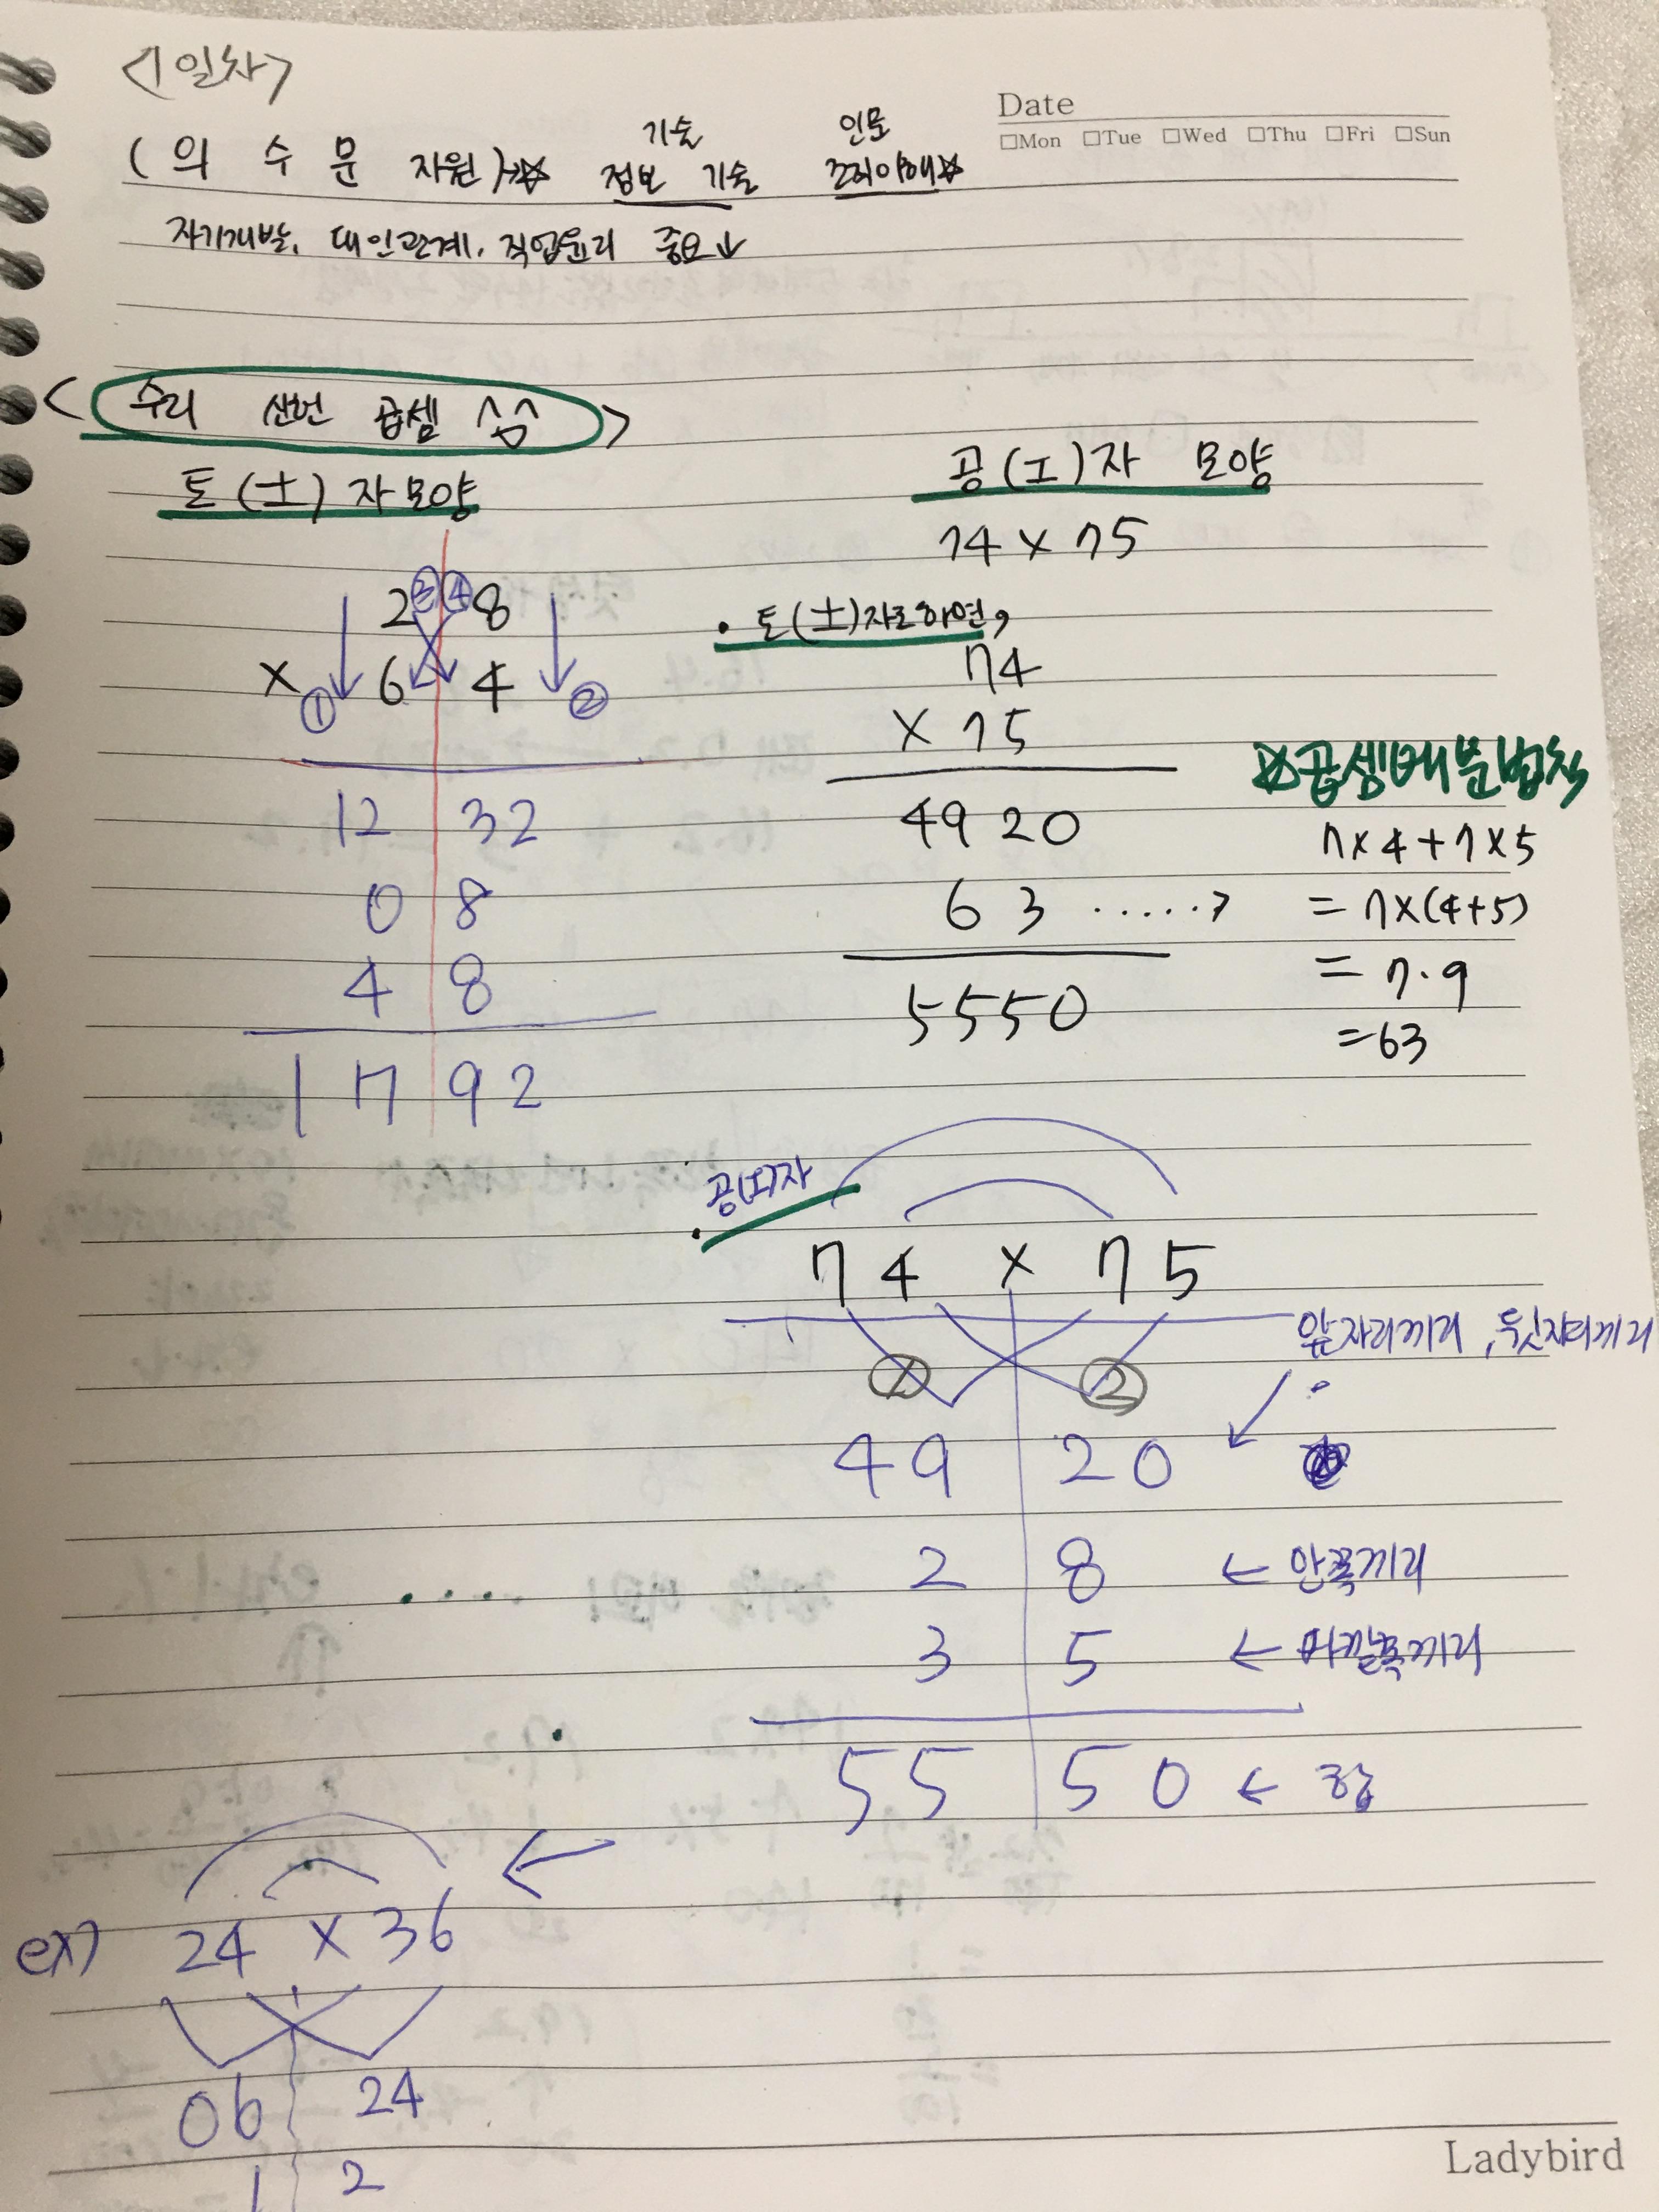 <1일차>
Date
□Mon □Tue □Wed □Thu □Fri □Sun
기술 인문
(의 수 문 자원)☆ 정보 기술 조직이해☆
자기개발, 대인관계, 직업윤리 중요↓
<수리 산법 곱셈 ^^>
토(土)자 모양
2 ③ ④ 8
× ① 6 4 ②
12 32
0 8
4 8
17 92
공(工)자 모양
74 × 75
• 토(土)자로 하면,
74
× 75
49 20
6 3 ·····>
5550
☆곱셈배분법칙
7×4+7×5
= 7×(4+5)
= 7·9
=63
• 공(工)자
74 × 75
① ②
앞자리끼리, 뒷자리끼리
49 20
2 8 ← 안쪽끼리
3 5 ← 바깥쪽끼리
55 50 ← 합
ex) 24 × 36
06 24
1 2
Ladybird